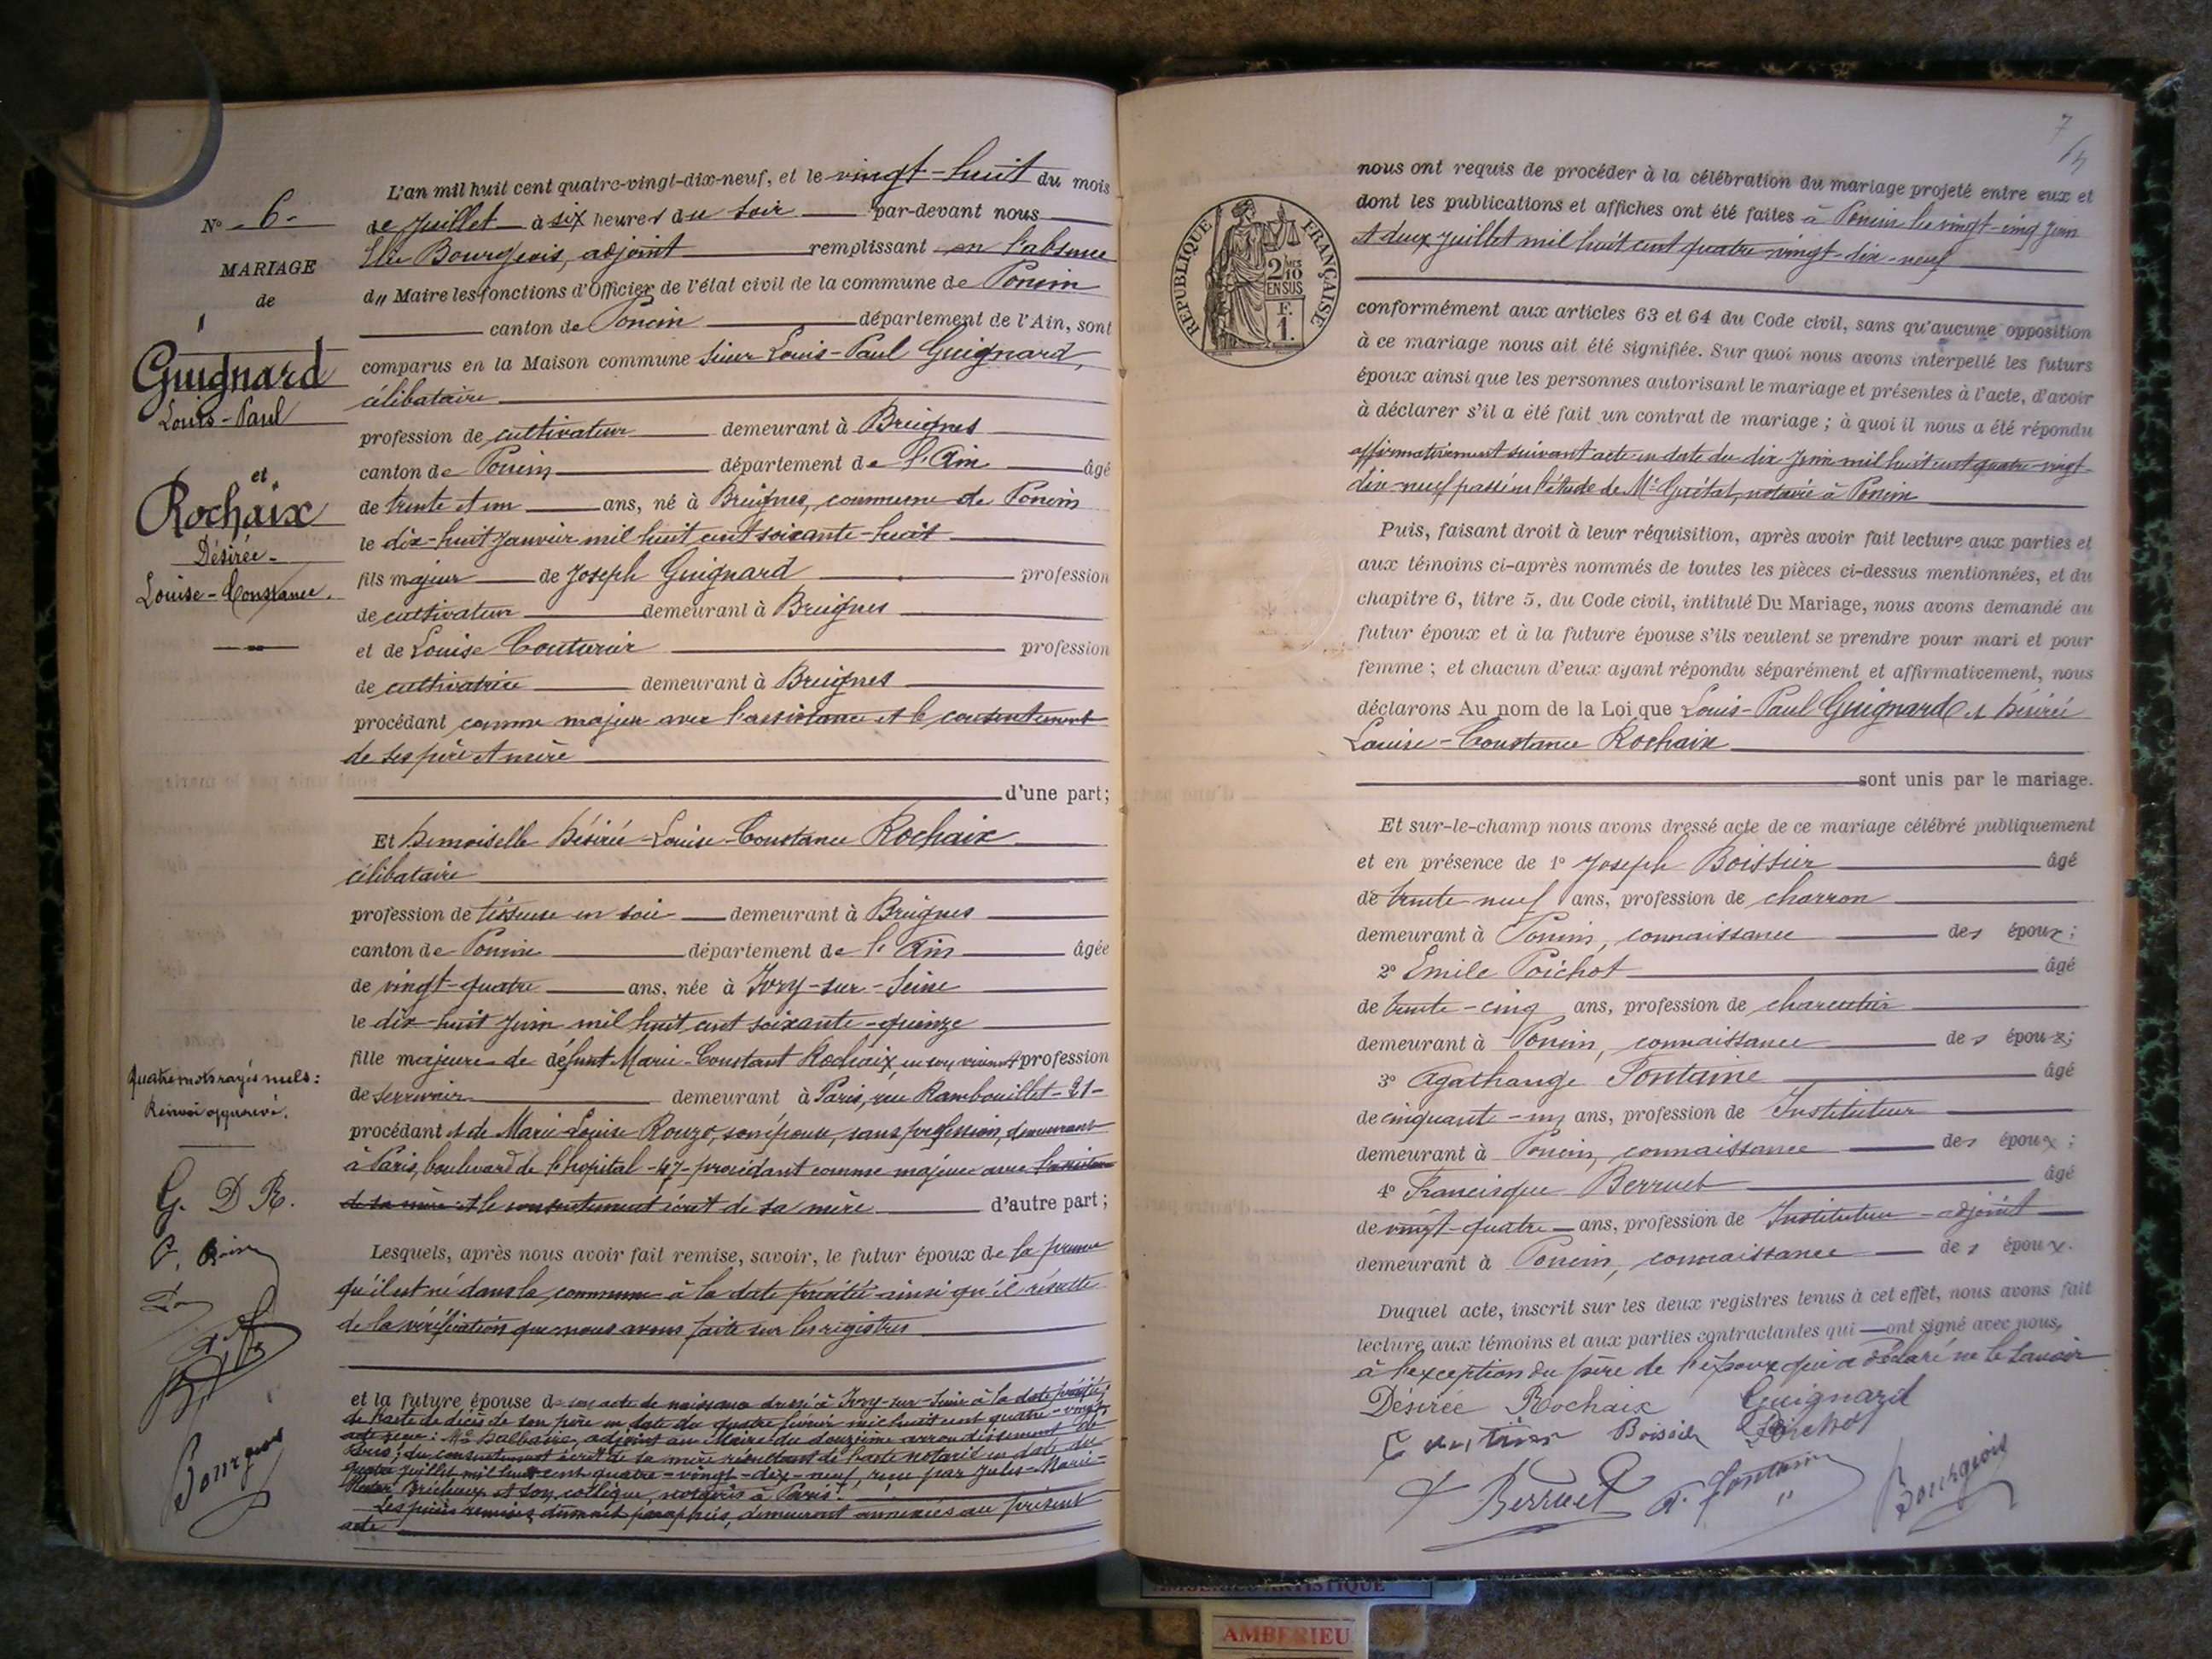 N° - 6 -
MARIAGE
de
Guignard
Louis-Paul
et
Rochaix
Désirée-
Louise-Constance.
quatre mots rayés nuls:
Renvoi approuvé.
G. D R.
Bourgeois
L'an mil huit cent quatre-vingt-dix-neuf, et le vingt-huit du mois
de Juillet à six heures du soir par-devant nous
Elie Bourgeois, adjoint remplissant en l'absence
du Maire les fonctions d'Officier de l'état civil de la commune de Poncin
canton de Poncin département de l'Ain, sont
comparus en la Maison commune sieur Louis-Paul Guignard,
célibataire
profession de cultivateur demeurant à Breignes
canton de Poncin département de l'Ain âgé
de trente et un ans, né à Breignes, commune de Poncin
le dix-huit Janvier mil huit cent soixante-huit
fils majeur de Joseph Guignard profession
de cultivateur demeurant à Breignes
et de Louise Couturier profession
de cultivatrice demeurant à Breignes
procédant comme majeur avec l'assistance et le consentement
de ses père et mère
d'une part;
Et Demoiselle Désirée-Louise-Constance Rochaix
célibataire
profession de tisseuse en soie demeurant à Breignes
canton de Poncin département de l'Ain âgée
de vingt-quatre ans, née à Ivry-sur-Seine
le dix-huit Juin mil huit cent soixante-quinze
fille majeure de défunt Marie-Constant Rochaix, en son vivant profession
de serrurier demeurant à Paris, rue Rambouillet-21-
procédant et de Marie-Louise Rouzo, son épouse, sans profession, demeurant
à Paris, boulevard de l'hopital -47- procédant comme majeure avec l'assistance
de sa mère et le consentement écrit de sa mère d'autre part;
Lesquels, après nous avoir fait remise, savoir, le futur époux de la preuve
qu'il est né dans la commune à la date précitée ainsi qu'il résulte
de la vérification que nous avons faite sur les registres
et la future épouse de son acte de naissance dressé à Ivry-sur-Seine à la date précitée;
de l'acte de décès de son père en date du quatre février mil huit cent quatre-vingt
adjoint au Maire du douzième arrondissement de
Paris; du consentement écrit de sa mère résultant de l'acte notarié en date du
quatre Juillet mil huit cent quatre-vingt-dix-neuf, reçu par Jules-Marie-
et son collègue, notaires à Paris.
Les pièces remises, dûment paraphées, demeurent annexées au présent
acte
7
nous ont requis de procéder à la célébration du mariage projeté entre eux et
dont les publications et affiches ont été faites à Poncin les vingt-cinq Juin
et deux Juillet mil huit cent quatre-vingt-dix-neuf
RÉPUBLIQUE FRANÇAISE
2/10
EN SUS
F.
1.
conformément aux articles 63 et 64 du Code civil, sans qu'aucune opposition
à ce mariage nous ait été signifiée. Sur quoi nous avons interpellé les futurs
époux ainsi que les personnes autorisant le mariage et présentes à l'acte, d'avoir
à déclarer s'il a été fait un contrat de mariage; à quoi il nous a été répondu
affirmativement suivant acte en date du dix Juin mil huit cent quatre-vingt-
dix-neuf passé en l'étude de Me Guétat, notaire à Poncin
Puis, faisant droit à leur réquisition, après avoir fait lecture aux parties et
aux témoins ci-après nommés de toutes les pièces ci-dessus mentionnées, et du
chapitre 6, titre 5, du Code civil, intitulé Du Mariage, nous avons demandé au
futur époux et à la future épouse s'ils veulent se prendre pour mari et pour
femme; et chacun d'eux ayant répondu séparément et affirmativement, nous
déclarons Au nom de la Loi que Louis-Paul Guignard et Désirée
Louise-Constance Rochaix
sont unis par le mariage.
Et sur-le-champ nous avons dressé acte de ce mariage célébré publiquement
et en présence de 1° Joseph Boissier âgé
de trente neuf ans, profession de charron
demeurant à Poncin, connaissance des époux;
2° Emile Poichot âgé
de trente-cinq ans, profession de charcutier
demeurant à Poncin, connaissance des époux;
3° Agathange Fontaine âgé
de cinquante-un ans, profession de Instituteur
demeurant à Poncin, connaissance des époux;
4° Francisque Berruet âgé
de vingt-quatre ans, profession de Instituteur-adjoint
demeurant à Poncin, connaissance des époux.
Duquel acte, inscrit sur les deux registres tenus à cet effet, nous avons fait
lecture aux témoins et aux parties contractantes qui ont signé avec nous,
à l'exception du père de l'époux qui a déclaré ne le savoir
Désirée Rochaix Guignard
Boissier Poichot
Berruet A. Fontaine Bourgeois
AMBERIEU ARTISTIQUE
AMBERIEU